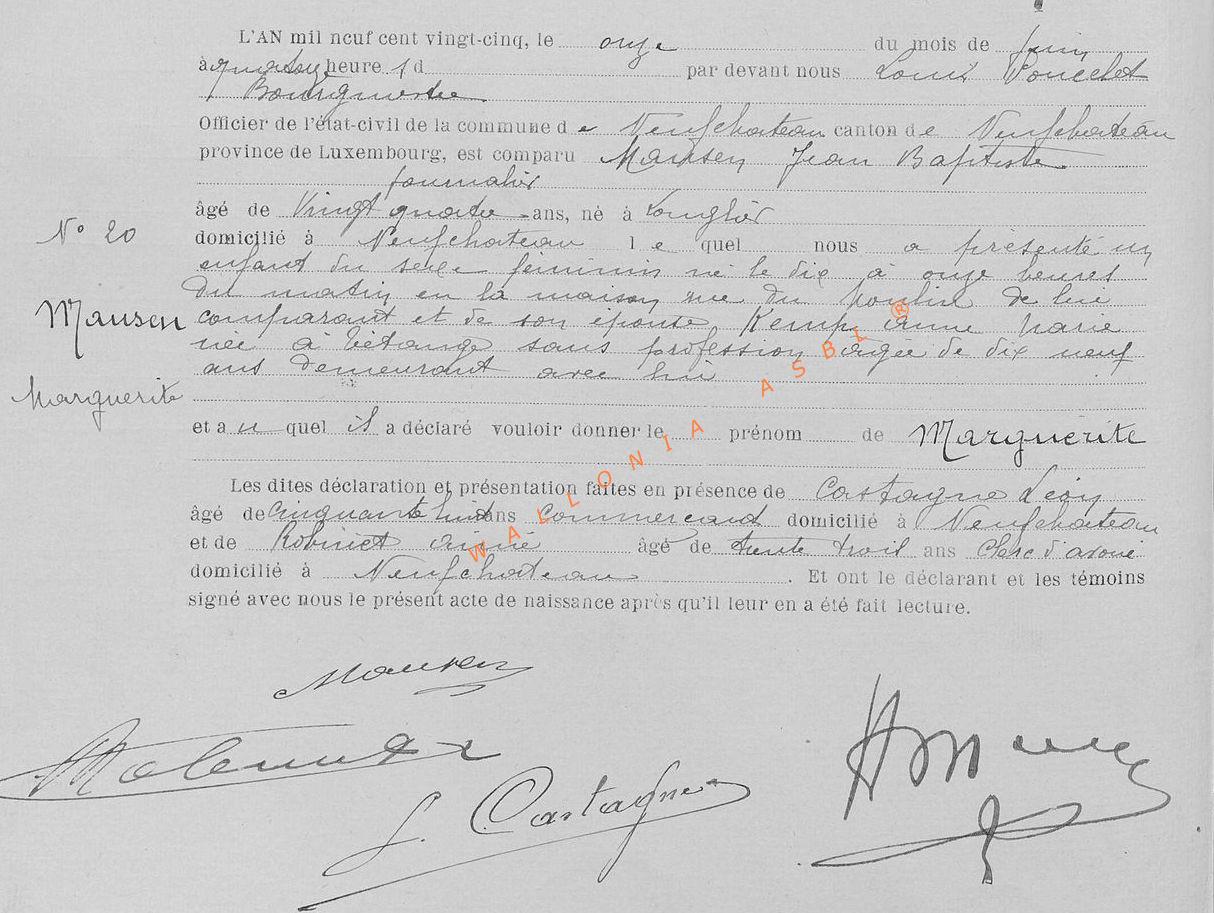 L'AN mil neuf cent vingt-cinq, le onze du mois de juin
à quatorze heure 1 d par devant nous Louis Poncelet
Bourgmestre
Officier de l'état-civil de la commune de Neufchateau canton de Neufchateau
province de Luxembourg, est comparu Mausen Jean Baptiste
journalier
âgé de Vingt quatre ans, né à Longlier
domicilié à Neufchateau le quel nous a présenté un
enfant du sexe féminin né le dix à onze heures
du matin en la maison rue du Moulin de lui
comparant et de son épouse Kemp anne Marie
née à betange sans profession agée de dix neuf
ans demeurant avec lui
N° 20
Mausen
Marguerite
et a u quel il a déclaré vouloir donner le prénom de Marguerite
Les dites déclaration et présentation faites en présence de Castagne Léon
âgé de Cinquante huit ans Commercant domicilié à Neufchateau
et de Robinet âgé de trente trois ans Clerc d'avoué
domicilié à Neufchateau . Et ont le déclarant et les témoins
signé avec nous le présent acte de naissance après qu'il leur en a été fait lecture.
Mausen
L. Castagne
WALLONIA ASBL ®